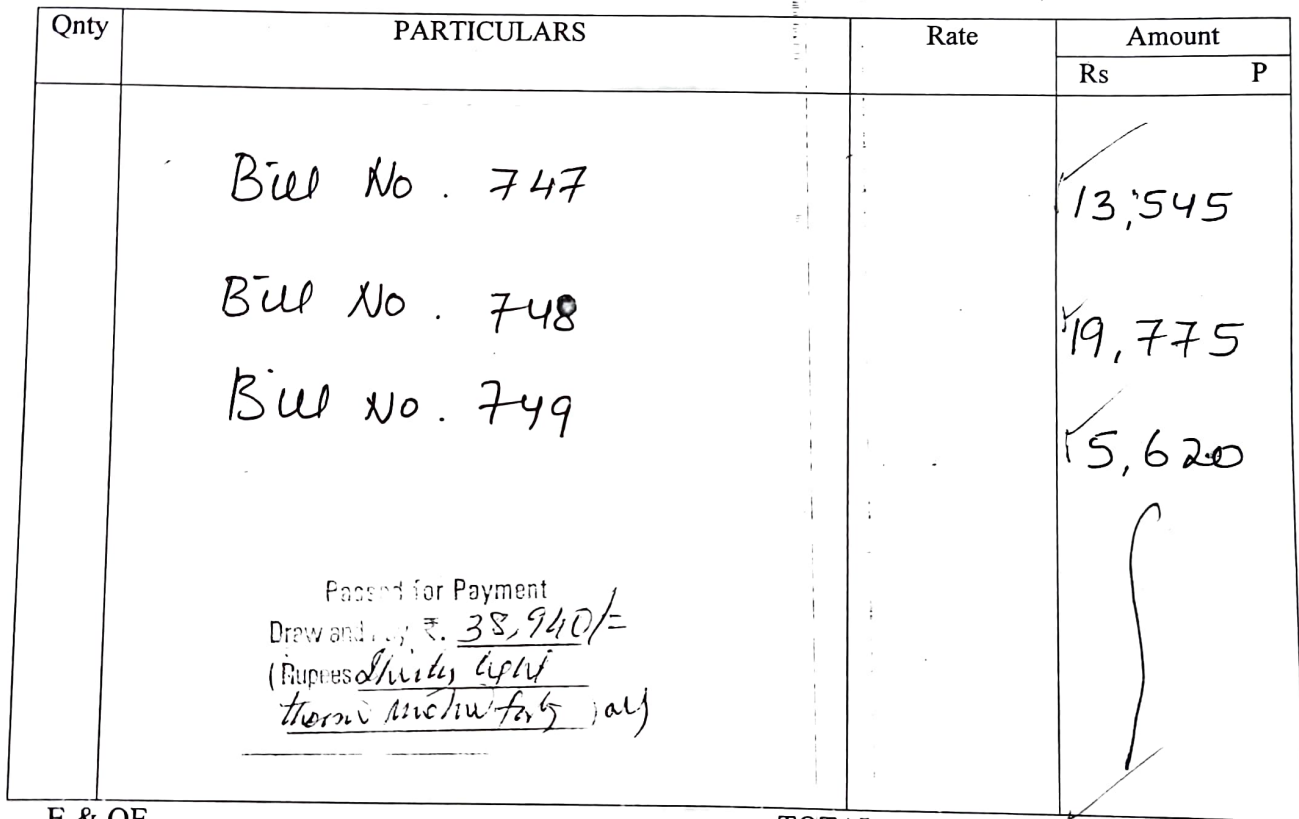 Qnty PARTICULARS Rate Amount
Rs P
Bill No. 747 13,545
Bill No. 748 19,775
Bill No. 749 5,620
Passed for Payment
Draw and Pay ₹. 38,940/=
(Rupees Thirty Eight
thousand nine hundred forty only
E & OE TOTAL